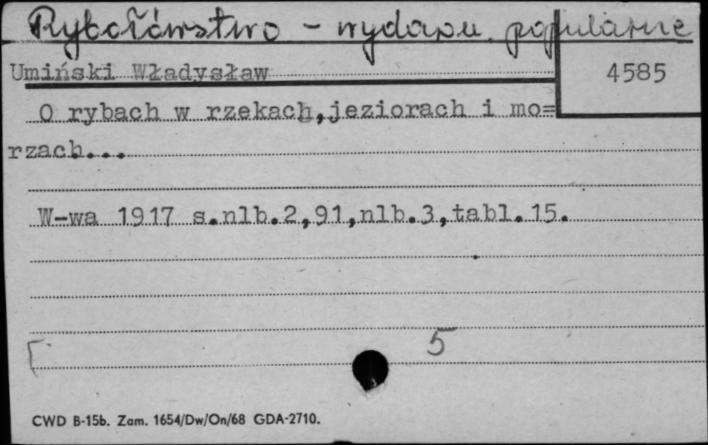 Rybołówstwo - wydawn. popularne
Umiński Władysław
4585
O rybach w rzekach,jeziorach i mo=
rzach...
W-wa 1917 s.nlb.2,91,nlb.3,tabl.15.
5
CWD B-15b. Zam. 1654/Dw/On/68 GDA-2710.